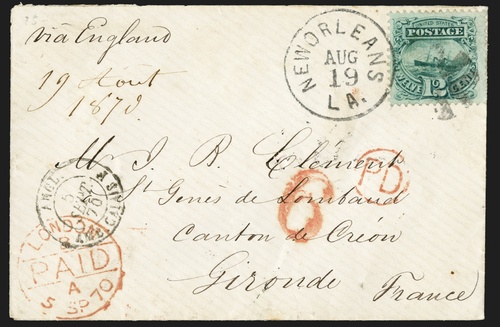 via England
19 Août
1870
NEW ORLEANS
AUG
19
LA.
UNITED STATES
POSTAGE
12
M J. B. Clément
St Genès de Lombaud
Canton de Créon
Gironde
France
PD
5
SEPT
70
LONDON
PAID
A
5 SP 70